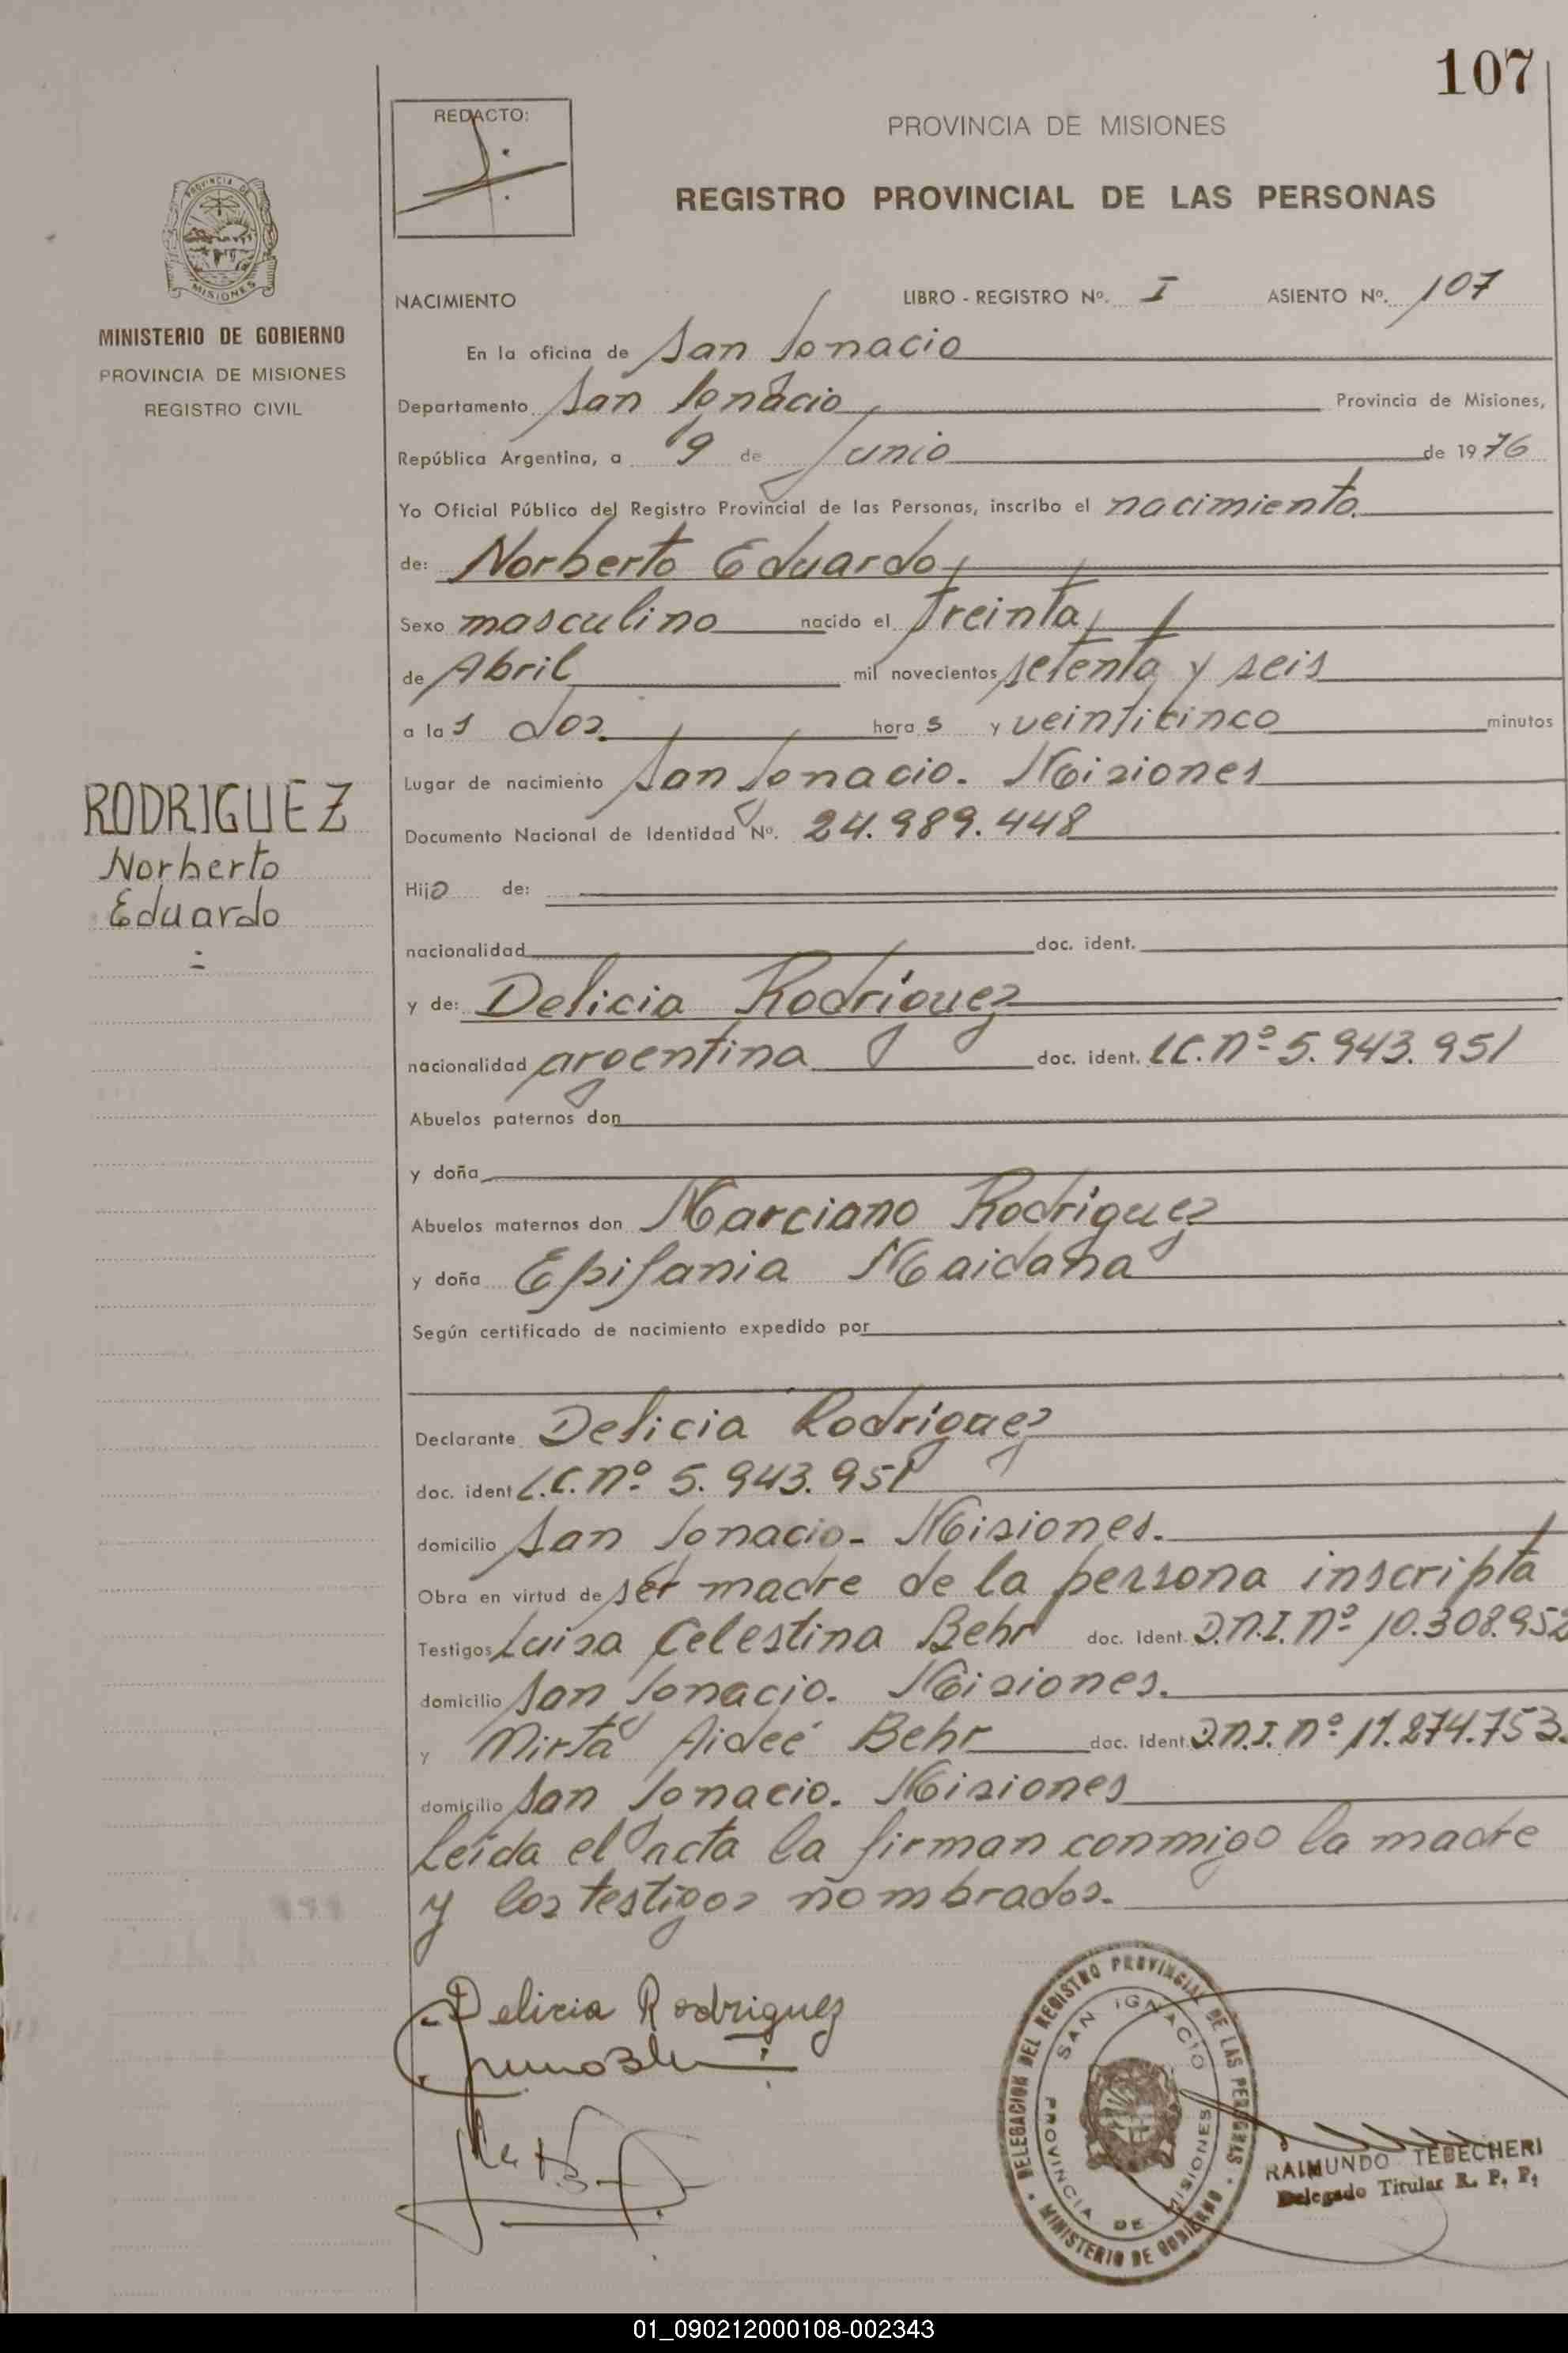 107
REDACTO:
PROVINCIA DE MISIONES
REGISTRO PROVINCIAL DE LAS PERSONAS
PROVINCIA DE
MISIONES
MINISTERIO DE GOBIERNO
PROVINCIA DE MISIONES
REGISTRO CIVIL
NACIMIENTO LIBRO - REGISTRO Nº. I ASIENTO Nº. 107
En la oficina de San Ignacio
Departamento San Ignacio Provincia de Misiones,
República Argentina, a 9 de Junio de 1976
Yo Oficial Público del Registro Provincial de las Personas, inscribo el nacimiento
de: Norberto Eduardo
Sexo masculino nacido el treinta
de Abril mil novecientos setenta y seis
a las dos horas y veinticinco minutos
Lugar de nacimiento San Ignacio. Misiones
Documento Nacional de Identidad Nº. 24.989.448
RODRIGUEZ
Norberto
Eduardo
Hijo de:
nacionalidad doc. ident.
y de: Delicia Rodríguez
nacionalidad argentina doc. ident. LC. nº 5.943.951
Abuelos paternos don
y doña
Abuelos maternos don Marciano Rodríguez
y doña Epifania Maidana
Según certificado de nacimiento expedido por
Declarante Delicia Rodríguez
doc. ident L.C. nº 5.943.951
domicilio San Ignacio- Misiones.
Obra en virtud de ser madre de la persona inscripta
Testigos Luisa Celestina Behr doc. Ident. D.N.I. Nº 10.308.952
domicilio San Ignacio. Misiones.
y Mirta Aideé Behr doc. Ident D.N.I. Nº 11.274.753.
domicilio San Ignacio. Misiones
Leída el acta la firman conmigo la madre
y los testigos nombrados.
Delicia Rodriguez
DELEGACION DEL REGISTRO PROVINCIAL DE LAS PERSONAS
SAN IGNACIO
PROVINCIA DE MISIONES
MINISTERIO DE GOBIERNO
RAIMUNDO TEBECHERI
Delegado Titular R. P. P.
01_090212000108-002343